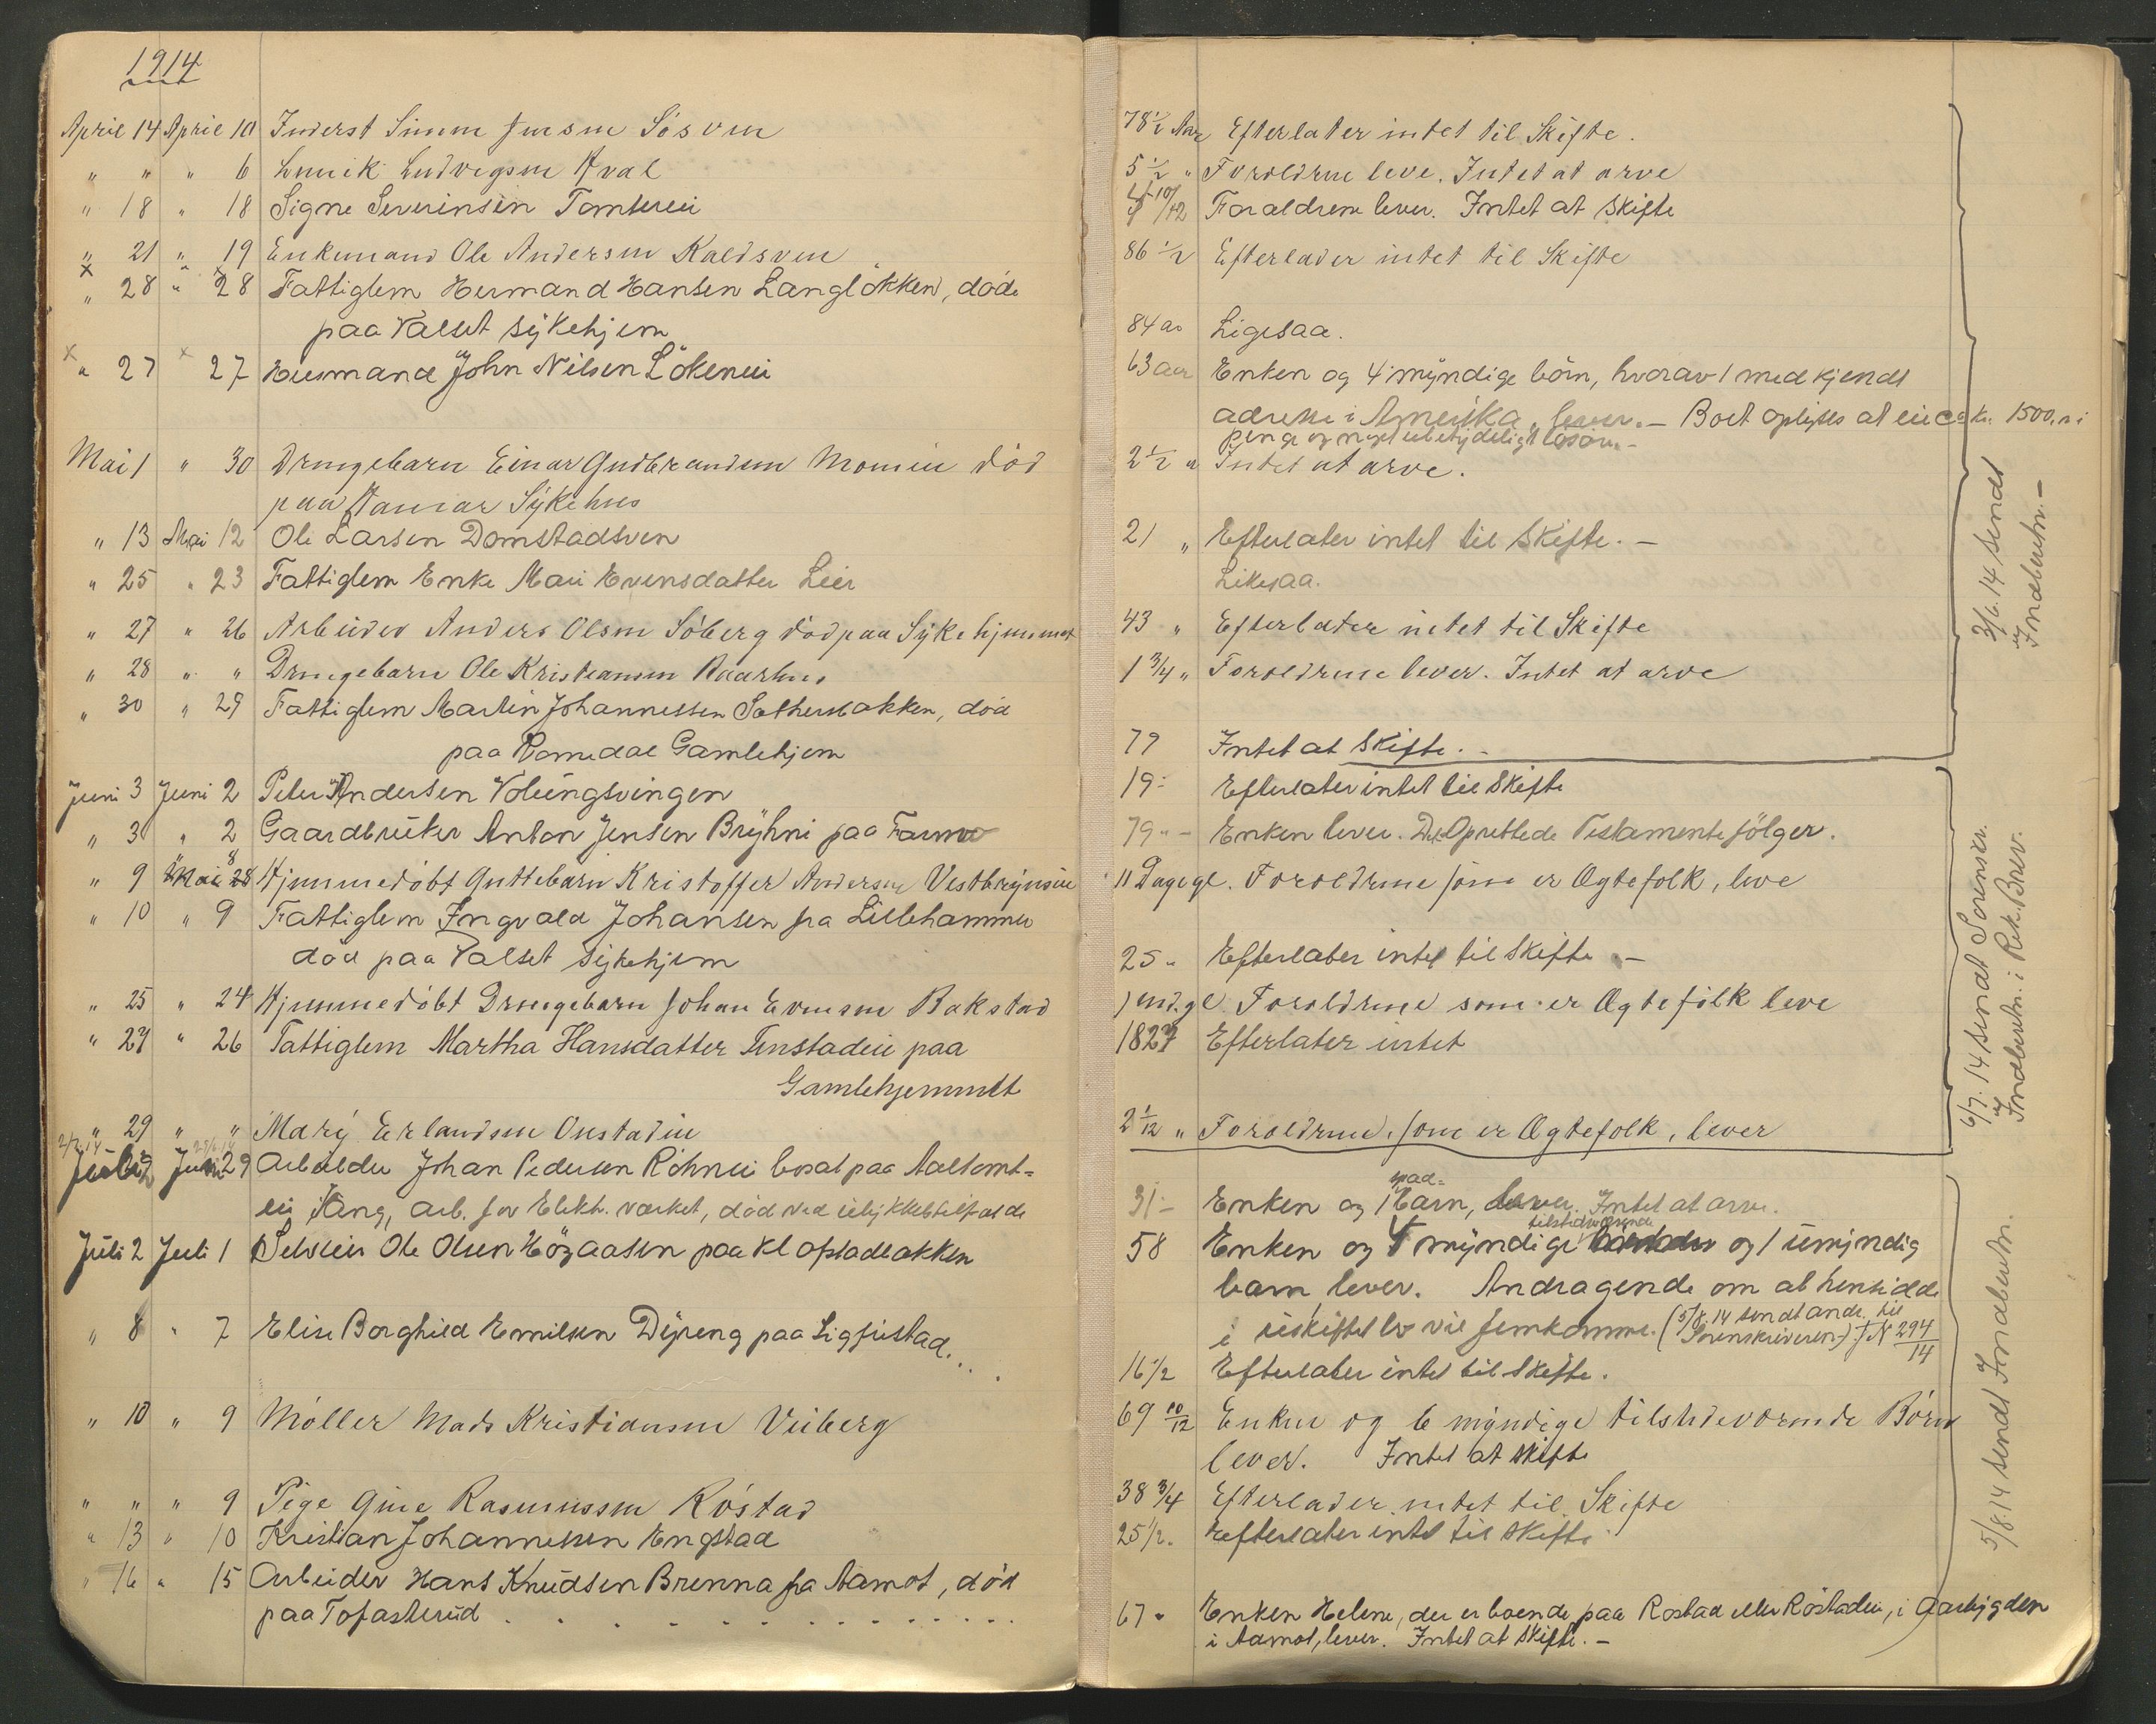 1914
April 14 April 10 Inderst Simen Jensen Sösven
" " " 6 Ludvigsen Hval
" 18 " 18 Signe Severinsen Tomterei
" 21 " 19 Enkemand Ole Andersen Kaldsven
" 28 " 28 Fattiglem Hermand Hansen Langlökken, döde
paa Valset sykehjem
" 27 27 Husmand John Nilsen Lökenei
Mai 1 " 30 Drengebarn Einar Gudbrandsen Momein död
paa Hamar Sykehus
" 13 Mai 12 Ole Larsen Domstadsven
" 25 " 23 Fattiglem Enke Mari Evensdatter Lier
" 27 " 26 Arbeider Anders Olsen Söberg död paa Sykehjemmet
" 28 " " Drengebarn Ole Kristiansen Aaarhus
" 30 " 29 Fattiglem Martin Johannessen Sæthersbakken, död
paa Romedal Gamlehjem
Juni 3 Juni 2 Peter Andersen Volungsvingen
" 3 " 2 Gaardbruker Anton Jensen Bryhni paa Farmo
" 9 " 8 Hjemmedöbt Guttebarn Kristoffer Andersen Vestbrynsei
" 10 " 9 Fattiglem Ingvald Johansen fra Lillehammer
död paa Valset sykehjem
" 25 " 24 Hjemmedöbt Drengebarn Johan Evensen Bakstad
" 27 " 26 Fattiglem Martha Hansdatter Tenstadei paa
Gamlehjemmet
" 29 " " Mary Erlandsen Onstadei
2/7 14
Juli 2 Juni 29 Arbeider Johan Pedersen Röhnei bosat paa Aaltomt-
ei i Vang, arb. for Elekt. værket, död ved ulykkestilfælde
Juli 2 Juli 1 Selveier Ole Olsen Högaasen paa Klopstadbakken
" 8 " 7 Elise Borghild Emilsen Dyreng paa Ligjustad...
" 10 " 9 Möller Mads Kristiansen Viberg
" " " 9 Pige Gine Rasmussen Röstad
" 13 " 10 Kristian Johannessen Engstad
" 16 " 15 Arbeider Hans Knudsen Brenna fra Aamot, död
paa Tofasterud . . . . . . . . . . . .
78 1/2 Aar Efterlater intet til Skifte.
5 1/2 " Foroldrene leve. Intet at arve
10/12 Foraldrene lever. Intet at skifte
86 1/2 Efterlader intet til Skifte
84 aar Ligesaa.
63 aar Enken og 4 myndige börn, hvorav 1 med kjendt
adresse i Amerika, lever. - Boet oplyses at eie ca kr. 1500,- i
penge og noget ubetydeligt lösöre. -
2 1/2 " Intet at arve.
21 " Efterlater intet til Skifte. -
Likesaa.
43 " Efterlater intet til Skifte
1 3/4 " Foroldrene lever. Intet at arve
79 Intet at skifte. -
19 - Efterlater intet til skifte
79 " - Enken lever. Det Oprettede Testamente fölger.
11 Dage gl. Foroldrene som er Ægtefolk, leve
25 " Efterlater intet til skifte. -
1 md. gl. Foroldrene som er Ægtefolk leve
1827 Efterlater intet
2 1/12 " Foroldrene, som er Ægtefolk, lever
spæd-
31 - Enken og 1 barn, lever. Intet at arve.
tilstedværende
58 Enken og 4 myndige og 1 umyndig
barn lever. Andragende om at hensidde
i uskiftet bo vil fremkomme. (5/8. 14 sendt andr. til
Sorenskriveren). JN 294/14
16 1/2 Efterlater intet til skifte.
69 10/12 Enken og 6 myndige tilstedeværende Börn
lever. Intet at skifte
38 3/4 Efterlader intet til Skifte
25 1/2. Efterlater intet til skifte
67 " Enken Helene, der er boende paa Rostad eller Röstadei, i
i Aamot, lever. Intet at skifte. -
3/6. 14 sendt
Indberetn. -
6/7. 14 sendt Sorenskr.
Indberetn. i Rek. Brev.
5/8. 14 sendt Indberetn.